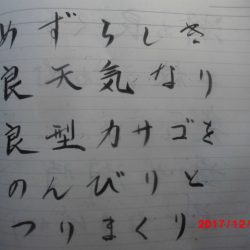 めずらしき
良天気なり
良型カサゴを
のんびりと
つりまくり
2017/12/